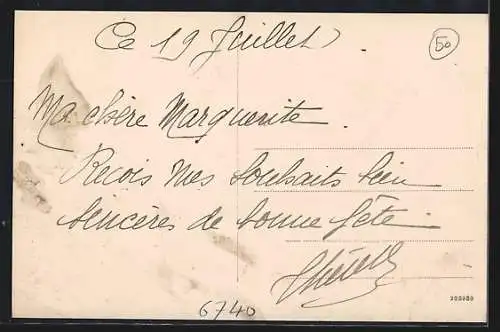 Ce 19 Juillet
50
Ma chère Marguerite
Recois mes souhaits bien
sincères de bonne fête
6740